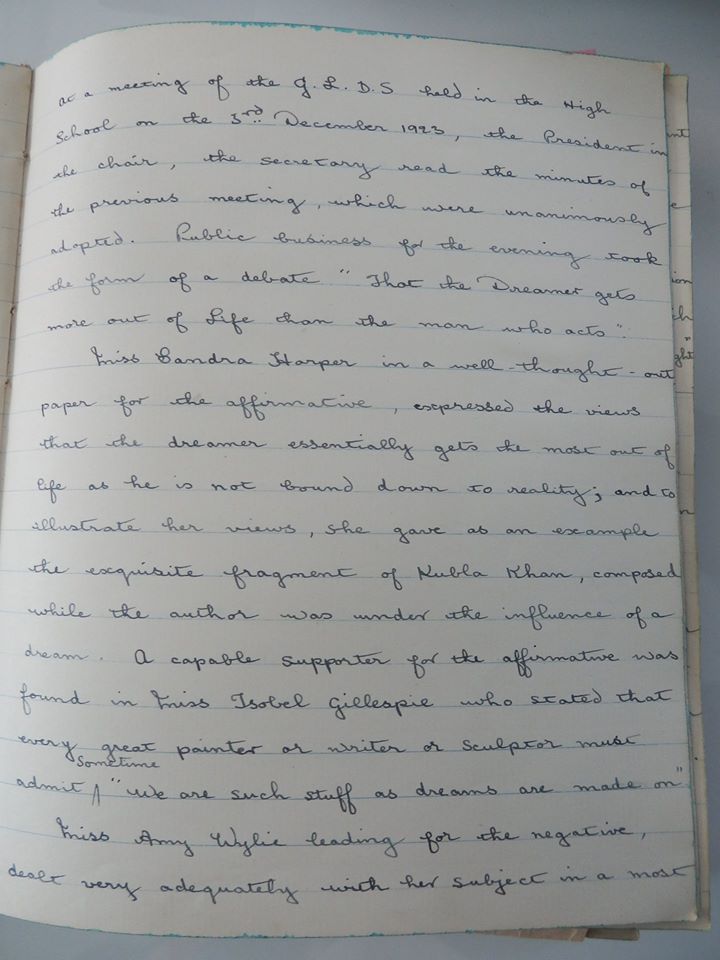 At a meeting of the G. L. D. S held in the High
School on the 3rd December 1923, the President in
the chair, the secretary read the minutes of
the previous meeting, which were unanimously
adopted. Public business for the evening took
the form of a debate "That the Dreamer gets
more out of Life than the man who acts".
Miss Sandra Harper in a well-thought-out
paper for the affirmative, expressed the views
that the dreamer essentially gets the most out of
life as he is not bound down to reality; and to
illustrate her views, she gave as an example
the exquisite fragment of Kubla Khan, composed
while the author was under the influence of a
dream. A capable supporter for the affirmative was
found in Miss Isobel Gillespie who stated that
every great painter or writer or sculptor must
Sometime
admit "We are such stuff as dreams are made on"
Miss Amy Wylie leading for the negative,
dealt very adequately with her subject in a most